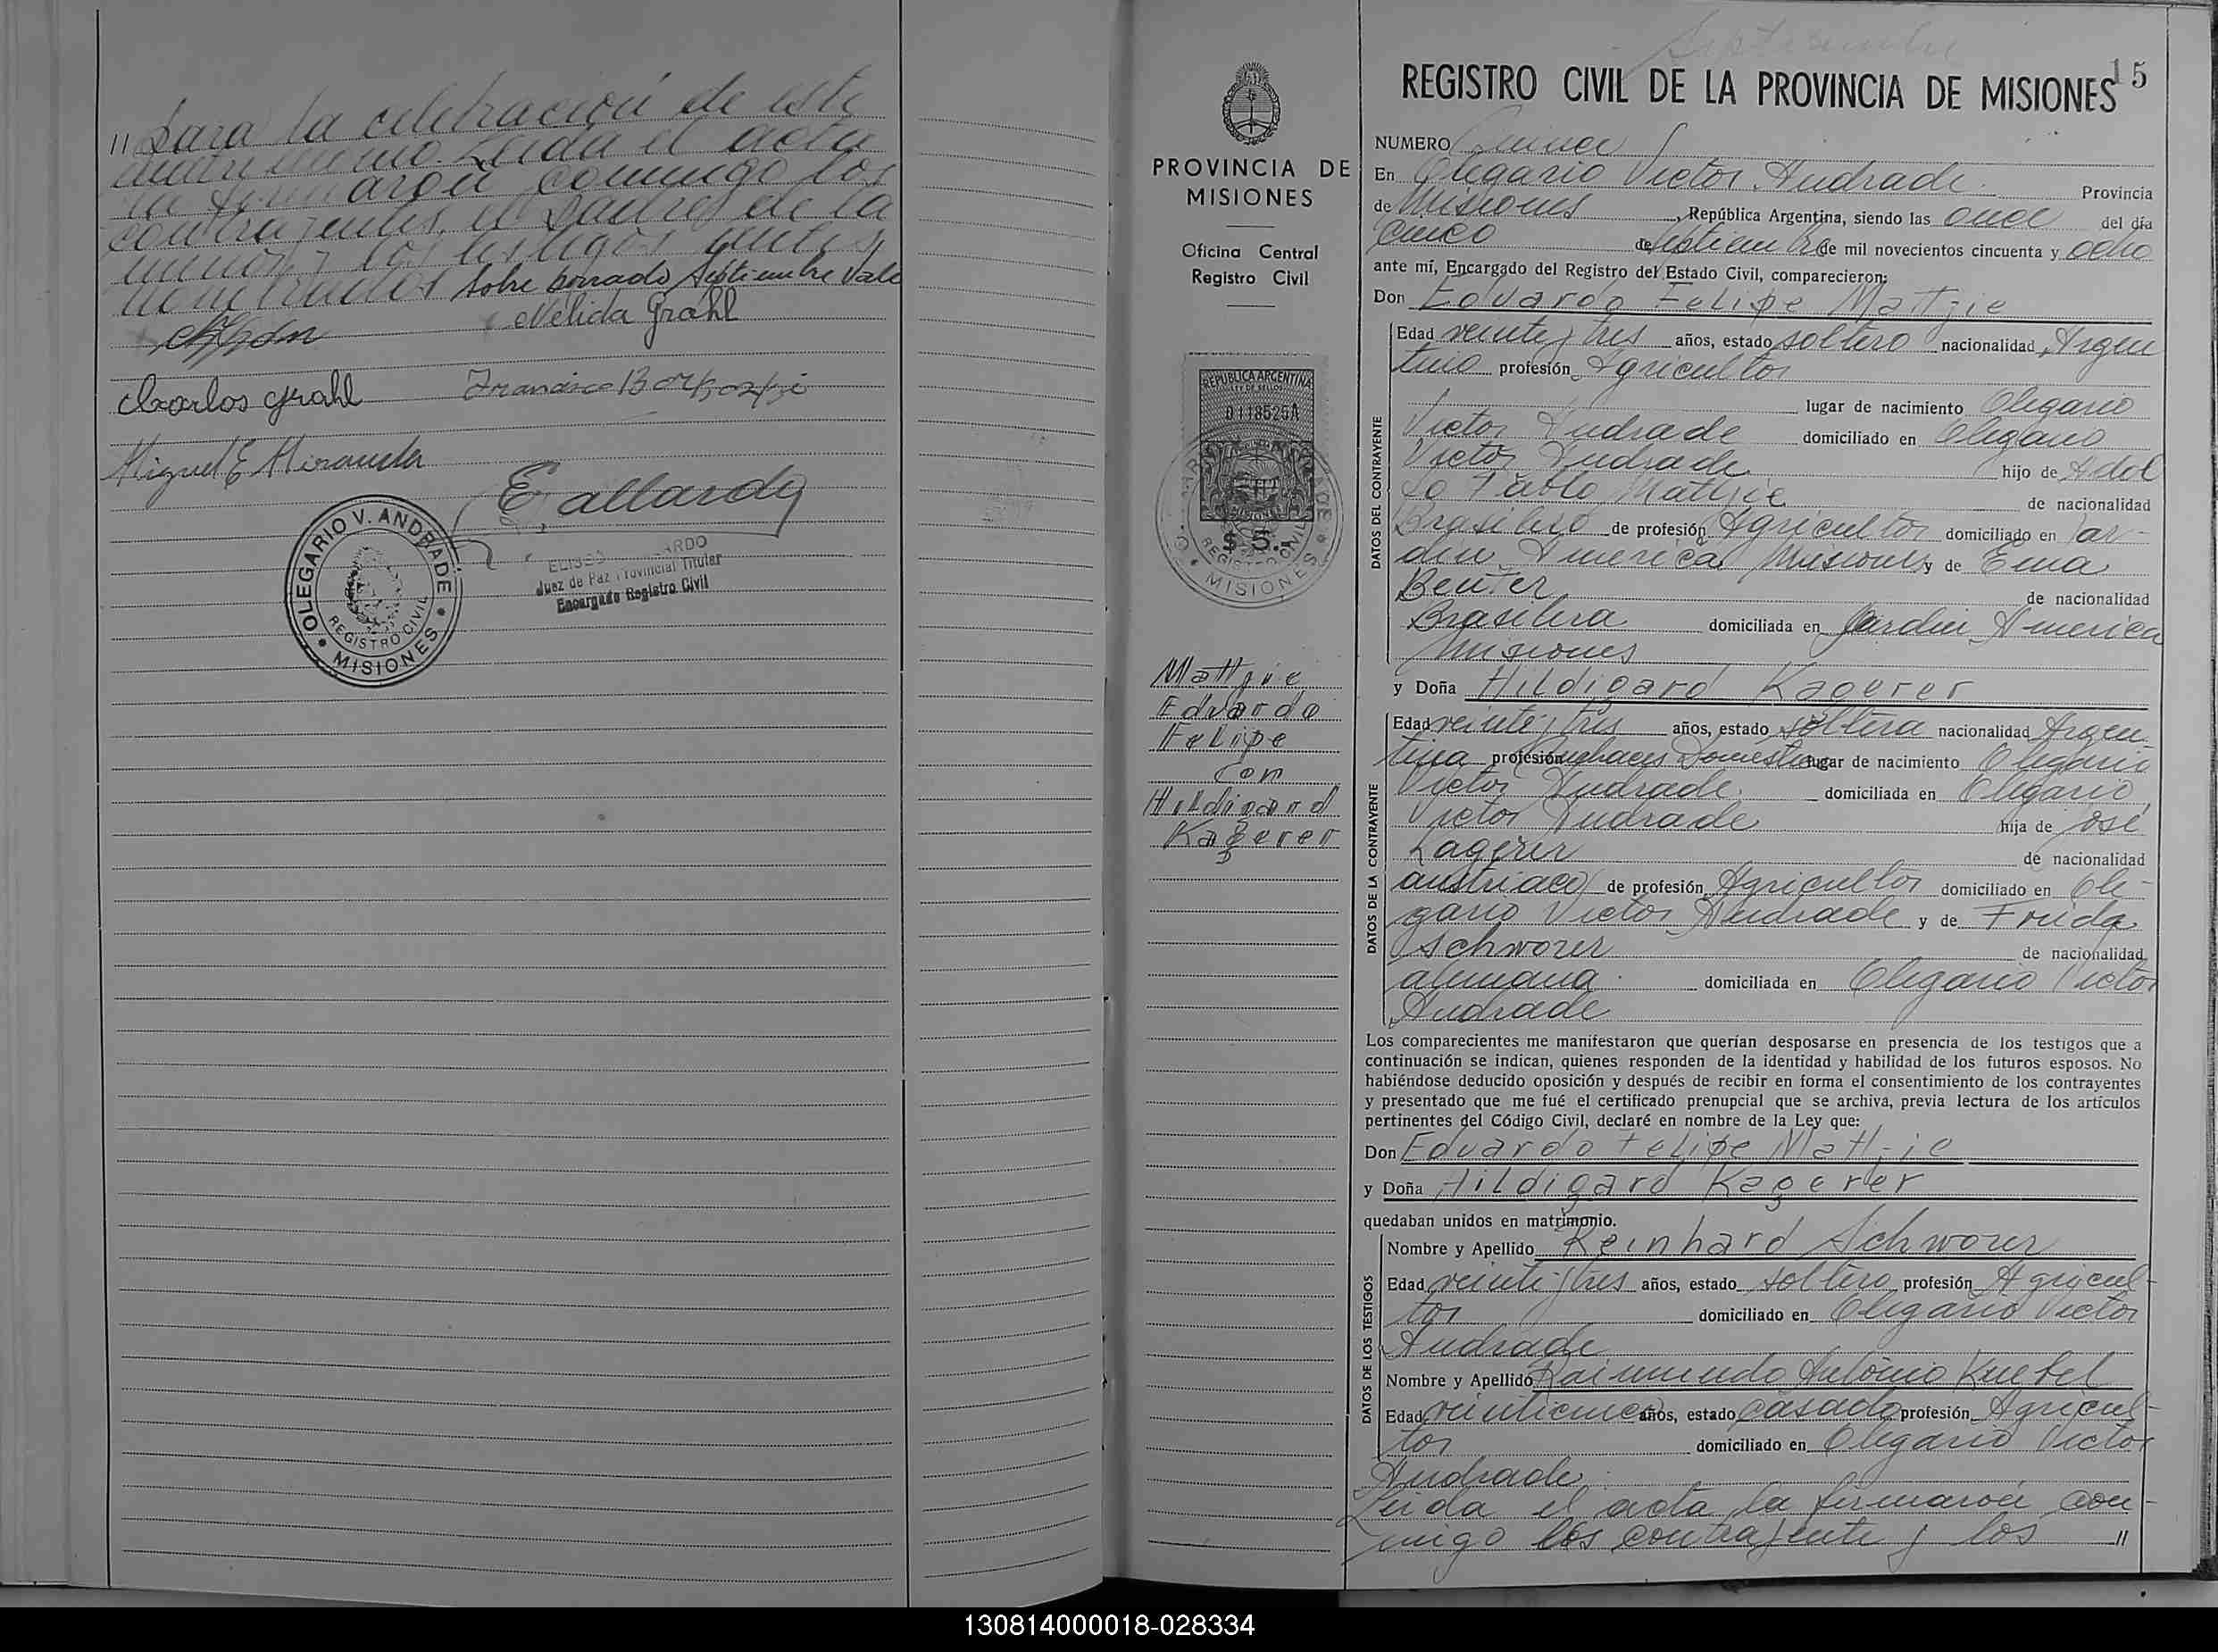 " para la celebración de este
matrimonio. Leida el acta
la firmaron conmigo los
contrayentes, el padre de la
menor y los testigos antes
nombrados sobre borrado Septiembre Vale
Nélida Grahl
Carlos Grahl Francisco
Miguel E Miranda
E, allardo
OLEGARIO V. ANDRADE
REGISTRO CIVIL
• MISIONES •
Juez de Paz Provincial Titular
Encargado Registro Civil
PROVINCIA DE
MISIONES
Oficina Central
Registro Civil
REPUBLICA ARGENTINA
LEY DE SELLOS
0118525A
$ 5.
REGISTRO CIVIL
• MISIONES •
Mattjie
Eduardo
Felipe
Con
Hildigard
Kagerer
Septiembre
15
REGISTRO CIVIL DE LA PROVINCIA DE MISIONES
NUMERO Quince
En Olegario Victor Andrade. Provincia
de Misiones, República Argentina, siendo las once del día
cinco de Septiembre de mil novecientos cincuenta y ocho
ante mí, Encargado del Registro del Estado Civil, comparecieron:
Don Eduardo Felipe Mattjie
Edad veinte y tres años, estado soltero nacionalidad Argen
tino profesión Agricultor
lugar de nacimiento Olegario
Victor Andrade domiciliado en Olegario
Victor Andrade hijo de Adol
fo Pablo Mattjie de nacionalidad
Brasilero de profesión Agricultor domiciliado en Jar-
din America Misiones y de Ema
Beuter de nacionalidad
Brasilera domiciliada en Jardin America
Misiones
y Doña Hildigard Kagerer
Edad veinte y tres años, estado soltera nacionalidad Argen-
tina profesión Quehaceres Domesticos lugar de nacimiento Olegario
Victor Andrade. domiciliada en Olegario
Victor Andrade hija de José
Kagerer de nacionalidad
austriaco de profesión Agricultor domiciliado en Ole-
gario Victor Andrade y de Frida
Schworer de nacionalidad
alemana. domiciliada en Olegario Victor
Andrade
DATOS DEL CONTRAYENTE
DATOS DE LA CONTRAYENTE
Los comparecientes me manifestaron que querían desposarse en presencia de los testigos que a
continuación se indican, quienes responden de la identidad y habilidad de los futuros esposos. No
habiéndose deducido oposición y después de recibir en forma el consentimiento de los contrayentes
y presentado que me fué el certificado prenupcial que se archiva, previa lectura de los artículos
pertinentes del Código Civil, declaré en nombre de la Ley que:
Don Eduardo Felipe Mattjie
y Doña Hildigard Kagerer
quedaban unidos en matrimonio.
Nombre y Apellido Reinhard Schworer
Edad veinte y tres años, estado soltero profesión Agricul-
tor domiciliado en Olegario Victor
Andrade
Nombre y Apellido Raimundo Antonio
Edad veinticinco años, estado casado profesión Agricul-
tor domiciliado en Olegario Victor
Andrade.
DATOS DE LOS TESTIGOS
Leida el acta la firmaron con-
migo los contrayente y los "
130814000018-028334